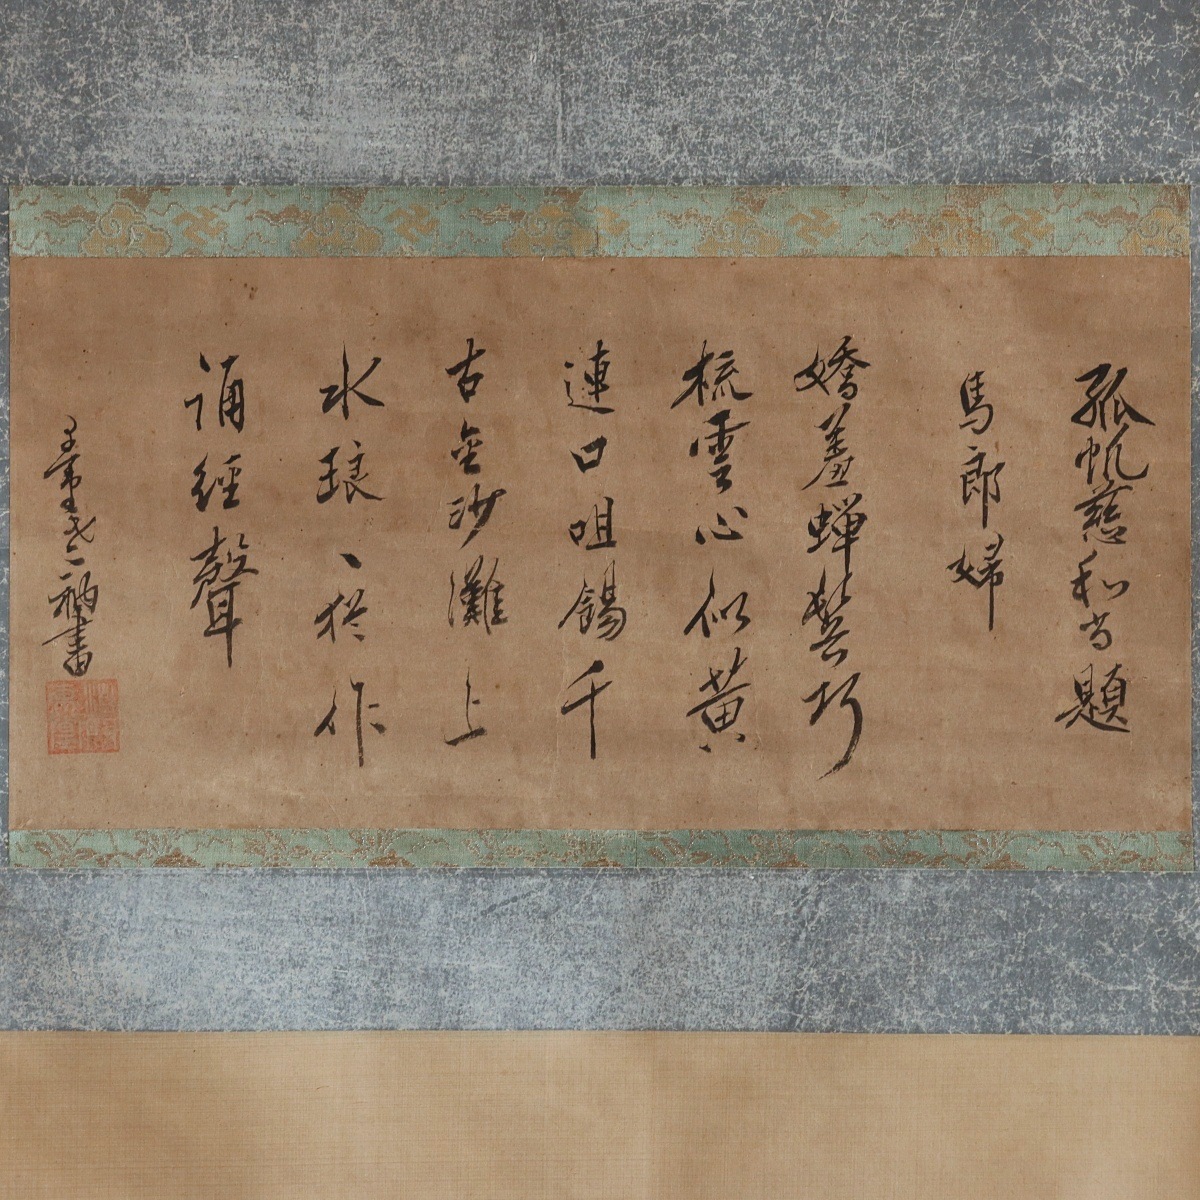 孤帆慈和尚題
馬郎婦
嬌羞蟬鬢巧
梳雲心似黄
連口咀餳千
古金沙灘上
水琅〻猶作
誦經聲
衲書